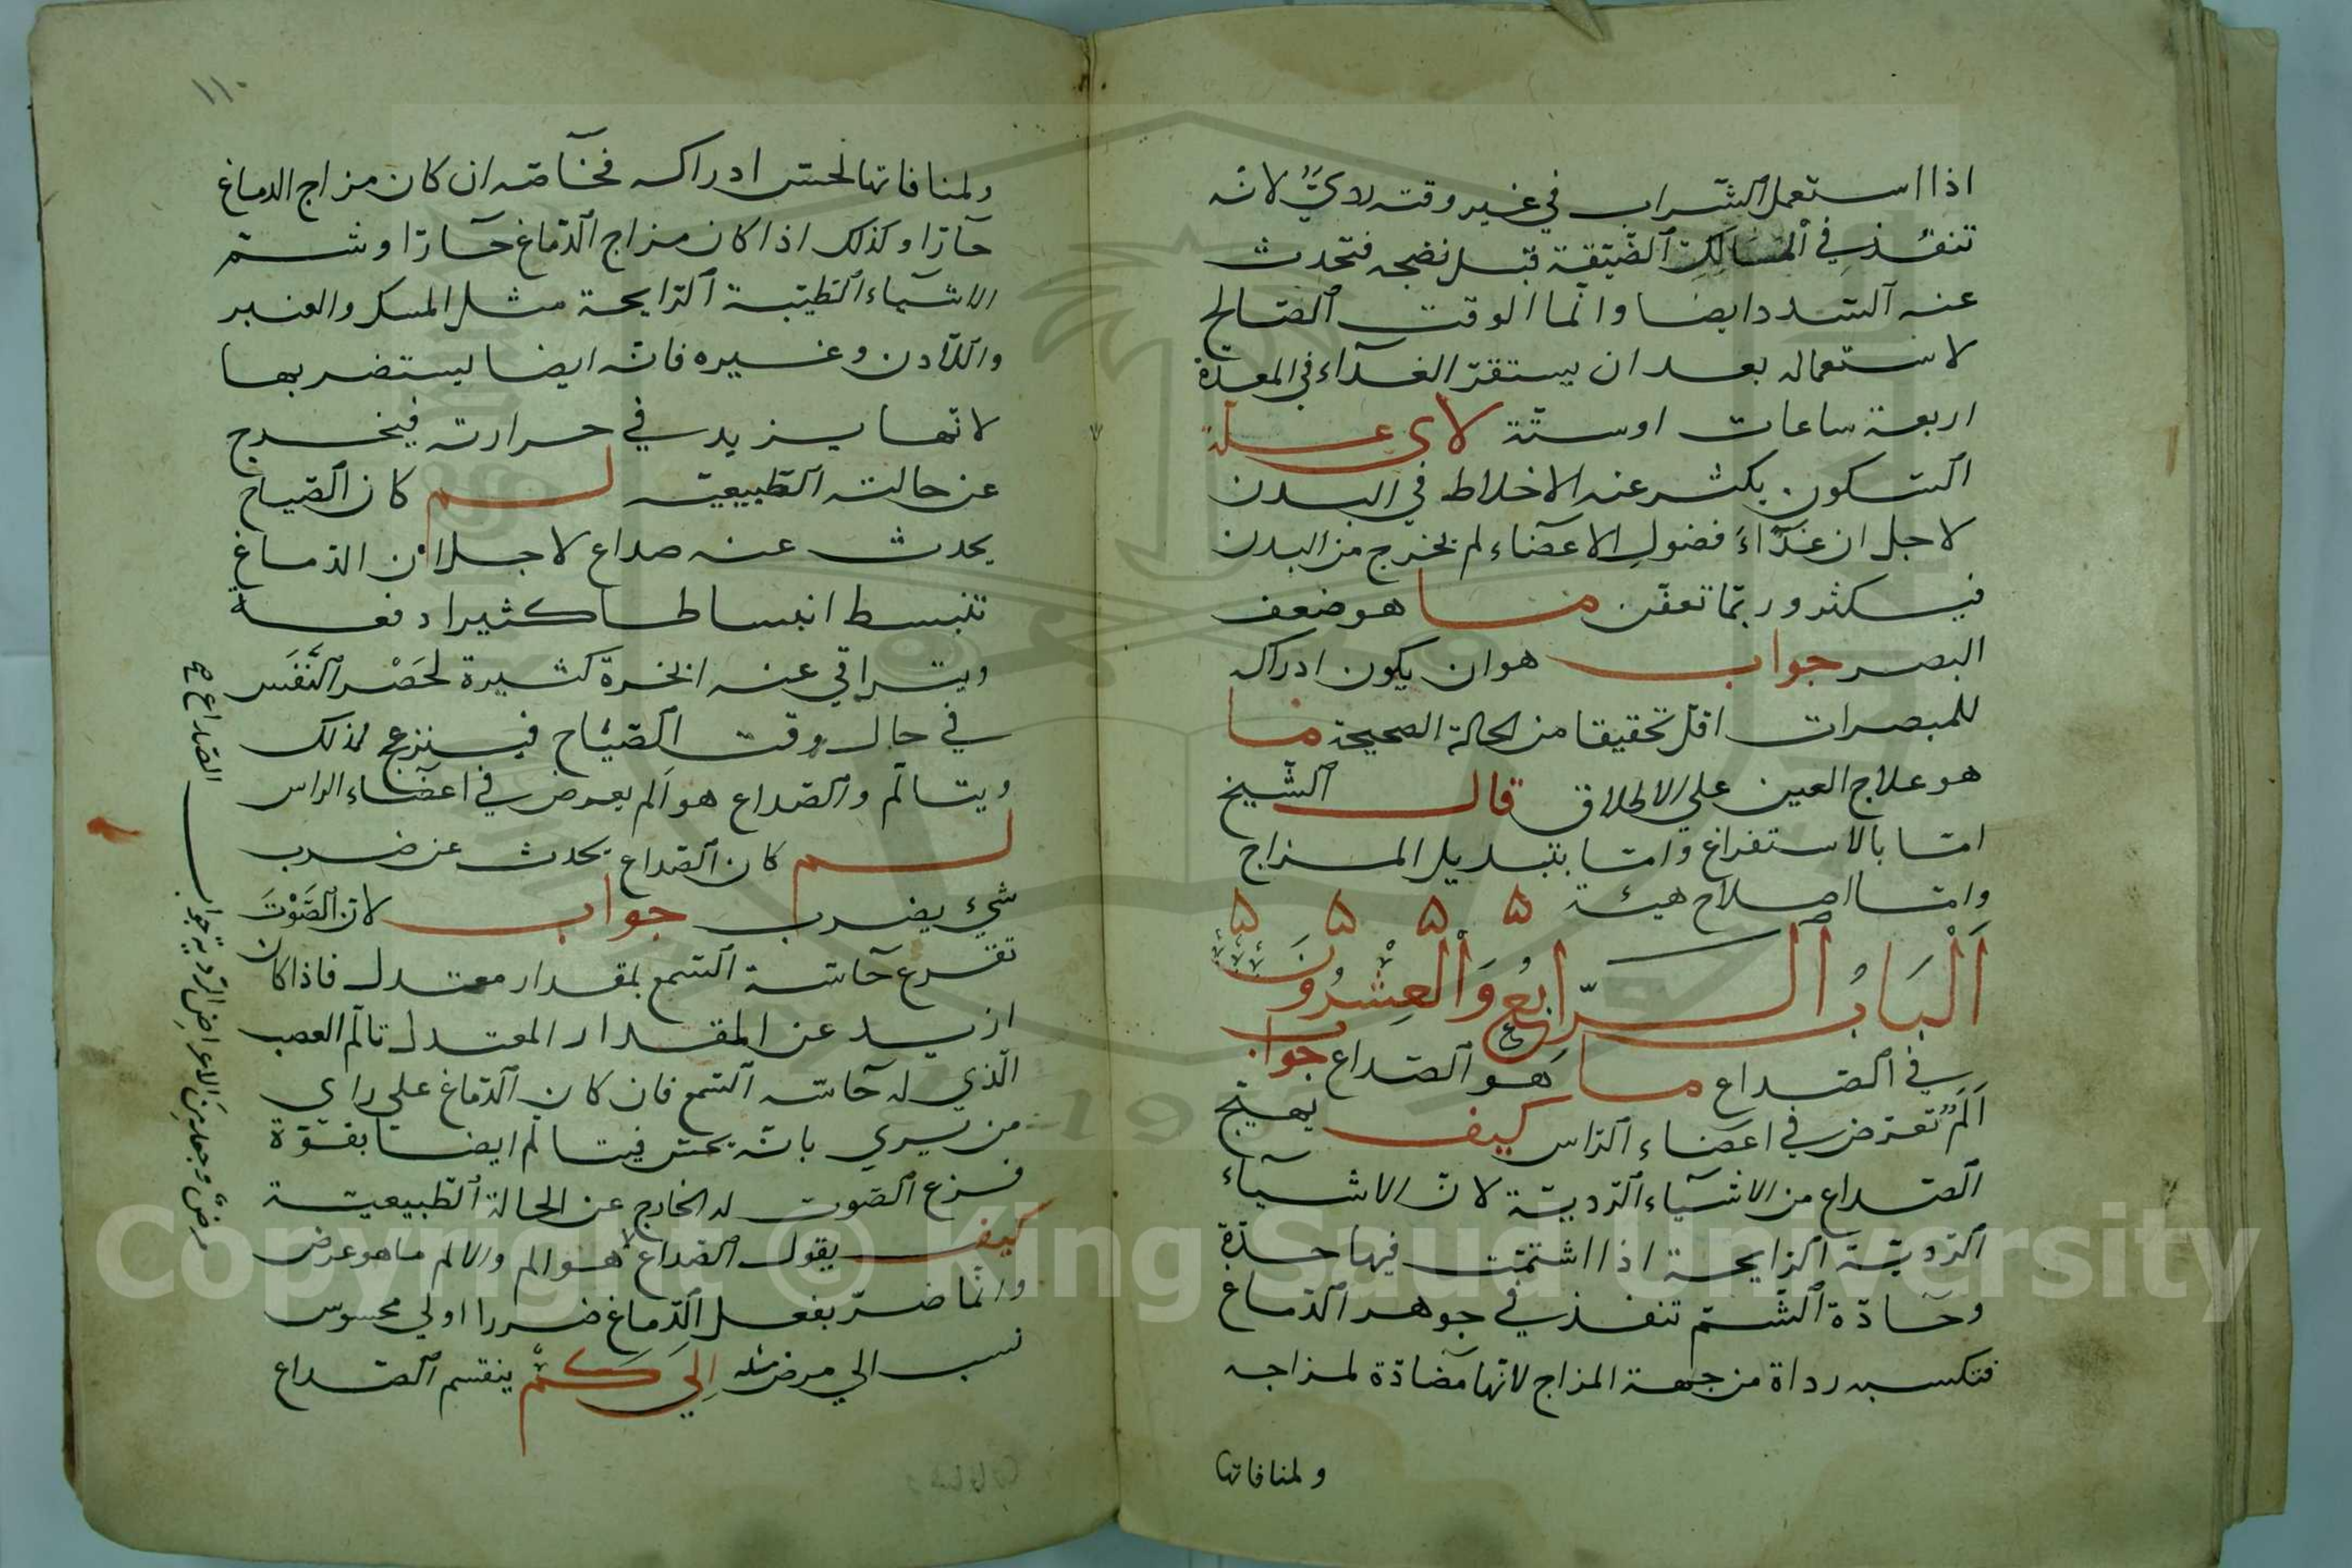 اذا استعمل الشراب في غير وقته ردي لانه
تنفذ في المسالك الضيقة قبل نضجه فتحدث
عنه السدد ايضا وانما الوقت الصالح
لاستعماله بعد ان يستقر الغذاء في المعدة
اربعة ساعات او ستة لاي علة
السكون يكثر عنه الاخلاط في البدن
لاجل ان غذاء فضول الاعضاء لم يخرج من البدن
فيكثر وربما تعفن ما هو ضعف
البصر جواب هو ان يكون ادراكه
للمبصرات اقل تحقيقا من الحالة الصحيحة ما
هو علاج العين علي الاطلاق قال الشيخ
اما بالاستفراغ واما بتبديل المزاج
واما اصلاح هيئة ۵ ۵ ۵ ۵
اَلْبَابُ الرّابعُ وَالْعِشْرُونَ
في الصداع ما هو الصداع جواب
اَلَمٌ تعرض في اعضاء الراس كيف يهيج
الصداع من الاشياء الردية لان الاشياء
الردية الرايحة اذا اشتمت فيها حدة
وحادة الشم تنفذ في جوهر الدماغ
فتكسبه رداة من جهة المزاج لانها مضادة لمزاجه
ولمنافاتها
١١٠
ولمنافاتها لحس ادراكه فخاصه ان كان مزاج الدماغ
حارا وكذلك اذا كان مزاج الدماغ حارا وشم
الاشياء الطيبة الرايحة مثل المسك والعنبر
واللادن وغيره فانه ايضا يستضر بها
لانها يزيد في حرارته فيخرج
عن حالته الطبيعية لم كان الصياح
يحدث عنه صداع لاجل ان الدماغ
تنبسط انبساطا كثيرا دفعة
ويتراقي عنه ابخرة كثيرة لحَصْر النَّفَس
في حال وقت الصياح فينزعج لذلك
ويتالم والصداع هو الم يعرض في اعضاء الراس
لم كان الصداع يحدث عن ضرب
شيء يضرب جواب لان الصَّوْتَ
تقرع حاسة السمع بمقدار معتدل فاذا كان
ازيد عن المقدار المعتدل تالم العصب
الذي له حاسة السمع فان كان الدماغ علي راي
من يري بانه يحس فيتالم ايضا بقوة
فزع الصوت له الخارج عن الحالة الطبيعية
كيف يقول الصداع هو الم والالم ما هو عرض
وانما ضر بفعل الدماغ ضررا اولي محسوس
نسب الي مرض الِي كَمْ ينقسم الصداع
الصداع
جواب
مرض وجملة من الاعراض الردية
Copyright © King Saud University